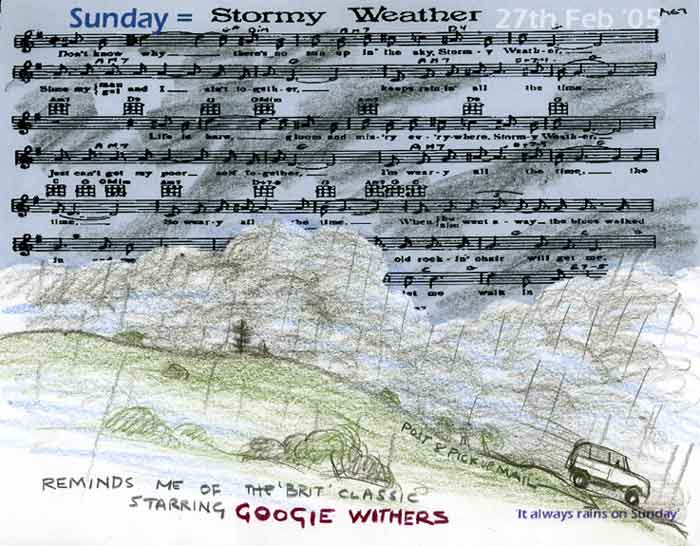 Sunday = Stormy Weather 27th Feb '05
Don't know why there's no sun up in the sky, Storm - y Weath - er,
Am7
Since my {man gal and I ain't to - geth - er, keeps rain - in' all the time.
Life is bare, gloom and mis - 'ry ev - 'ry - where, Storm - y Weath - er,
Just can't get my poor self to - geth - er, I'm wear - y all the time, the
time, So wear - y all the time. When went a - way the blues walked
in and old rock - in' chair will get me,
let me walk in
POST & PICK UP MAIL
REMINDS ME OF THE 'BRIT' CLASSIC
STARRING GOOGIE WITHERS
'It always rains on Sunday'